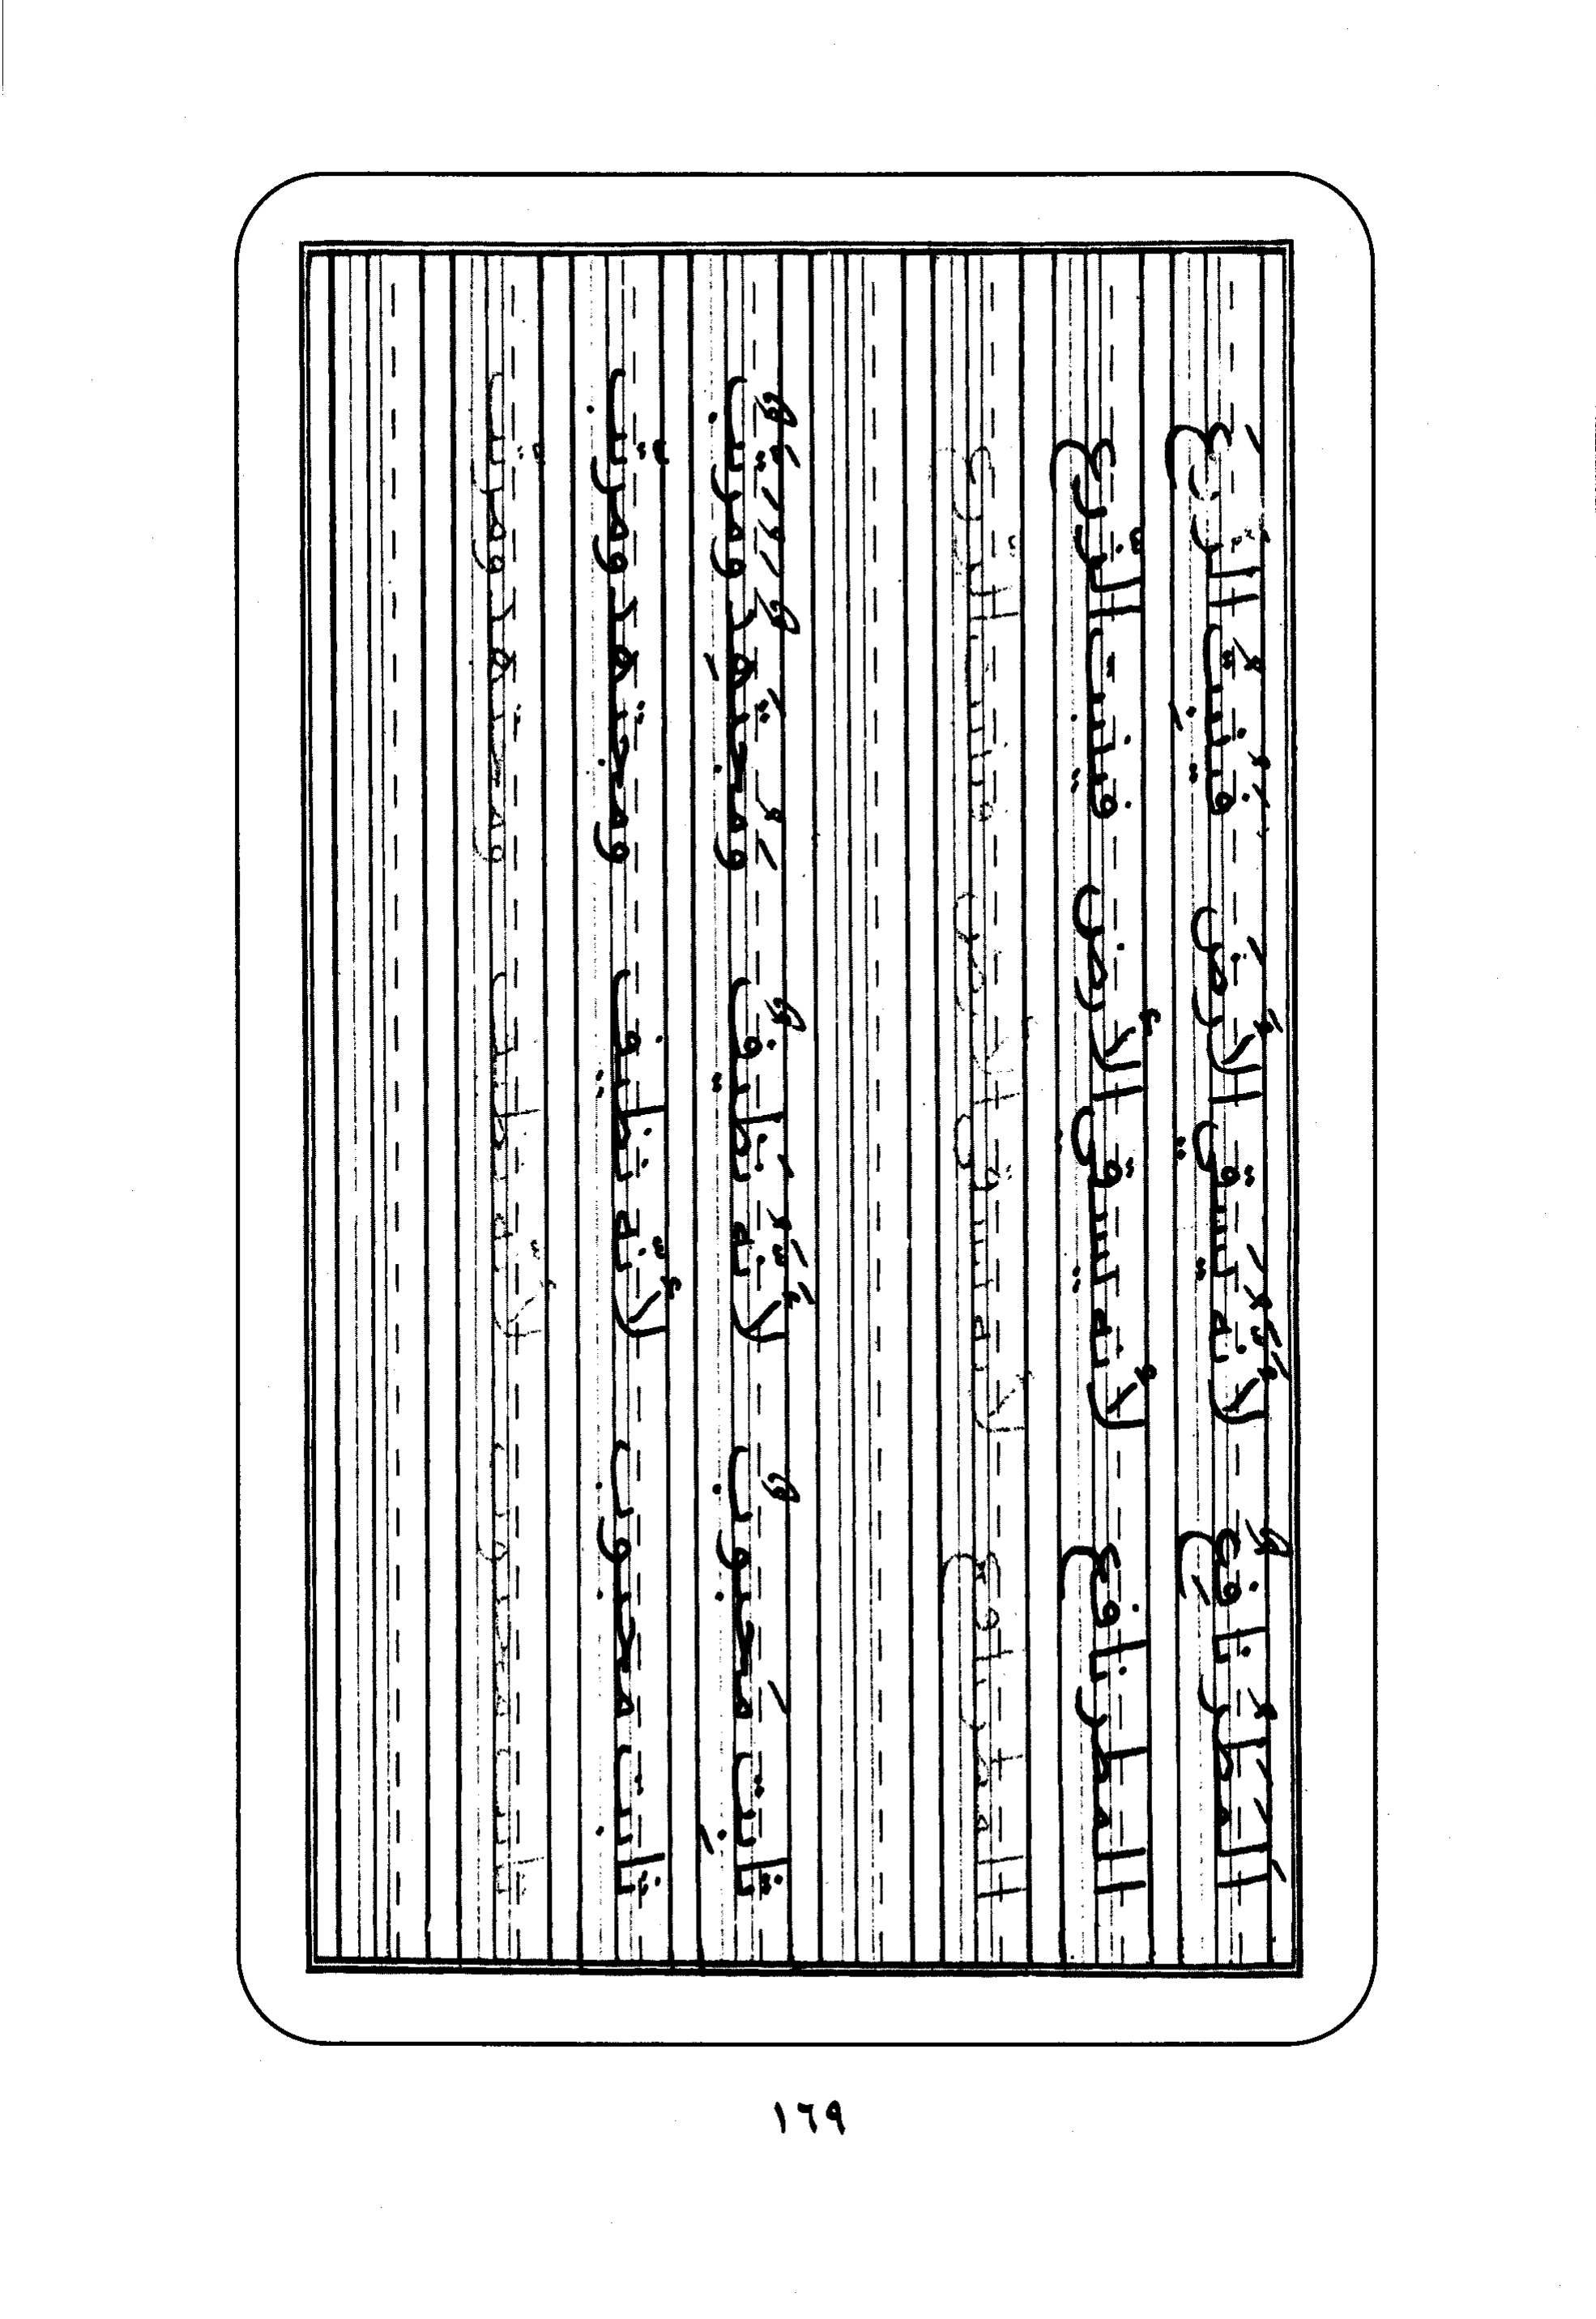 اَلْمَطَرُ نَافِعٌ لِأَنَّهُ يَسْقِي الأَرْضَ فَيَنْبِتُ الزَّرْعَ
المطر نافع لأنه يسقي الأرض فينبت الزّرع
المطر نافع لأنه يسقي الأرض فينبت الزّرع
ثَابِتٌ مَحْبُوبٌ لِأَنَّهُ نَظِيفٌ وَمُجْتَهِدٌ وَمُرَتَّبٌ
ثابت محبوب لأنّه نظيف ومجتهد ومرتّب
ثابت محبوب لأنّه نظيف ومجتهد ومرتّب
١٦٩